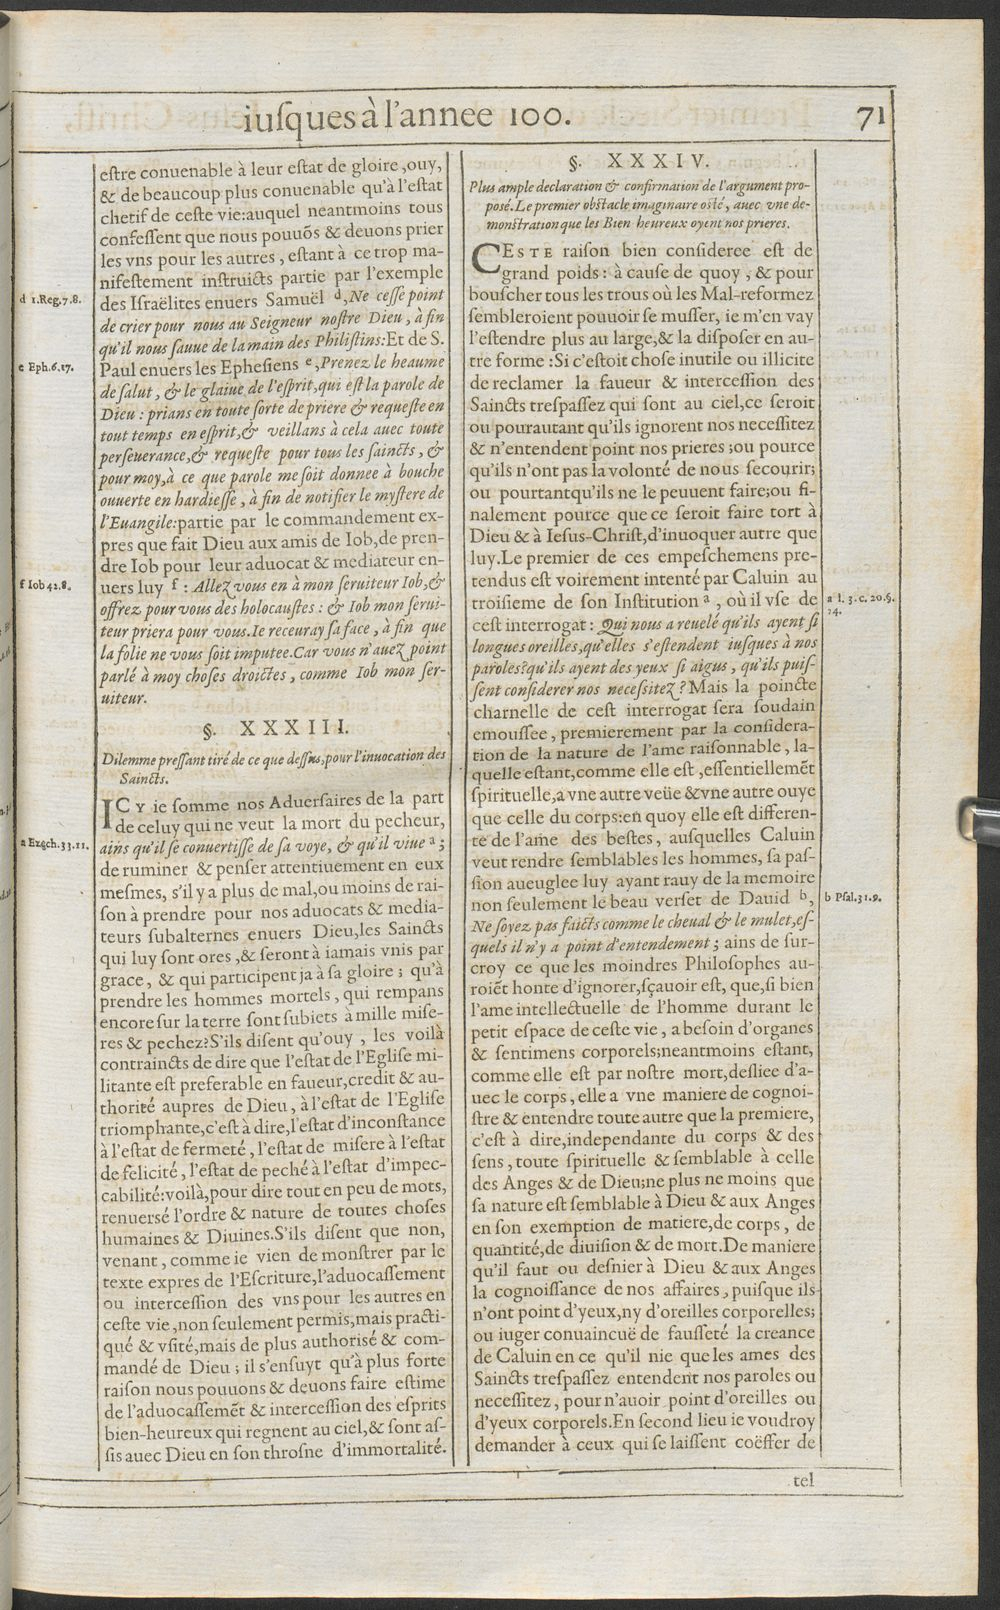 iuſques à l'annee 100.
71
eſtre conuenable à leur eſtat de gloire, ouy,
& de beaucoup plus conuenable qu'à l'eſtat
chetif de ceſte vie: auquel neantmoins tous
confeſſent que nous pouuõs & deuons prier
les vns pour les autres, eſtant à ce trop ma-
nifeſtement inſtruicts partie par l'exemple
d 1.Reg.7.8.
des Iſraëlites enuers Samuël d, Ne ceſſe point
de crier pour nous au Seigneur noſtre Dieu, à fin
qu'il nous ſauue de la main des Philiſtins: Et de S.
e Eph.6.17.
Paul enuers les Epheſiens e, Prenez le heaume
de ſalut, & le glaiue de l'eſprit, qui eſt la parole de
Dieu: prians en toute ſorte de priere & requeſte en
tout temps en eſprit, & veillans à cela auec toute
perſeuerance, & requeſte pour tous les ſaincts, &
pour moy, à ce que parole me ſoit donnee à bouche
ouuerte en hardieſſe, à fin de notifier le myſtere de
l'Euangile: partie par le commandement ex-
pres que fait Dieu aux amis de Iob, de pren-
dre Iob pour leur aduocat & mediateur en-
f Iob 42.8.
uers luy f: Allez vous en à mon ſeruiteur Iob, &
offrez pour vous des holocauſtes: & Iob mon ſerui-
teur priera pour vous. Ie receuray ſa face, à fin que
la folie ne vous ſoit imputee. Car vous n'auez point
parlé à moy choſes droictes, comme Iob mon ſer-
uiteur.
§. XXXIII.
Dilemme preſſant tiré de ce que deſſus, pour l'inuocation des
Saincts.
ICY ie ſomme nos Aduerſaires de la part
de celuy qui ne veut la mort du pecheur,
a Ezech.33.11.
ains qu'il ſe conuertiſſe de ſa voye, & qu'il viue a;
de ruminer & penſer attentiuement en eux
meſmes, s'il y a plus de mal, ou moins de rai-
ſon à prendre pour nos aduocats & media-
teurs ſubalternes enuers Dieu, les Saincts
qui luy ſont ores, & ſeront à iamais vnis par
grace, & qui participent ja à ſa gloire; qu'à
prendre les hommes mortels, qui rempans
encore ſur la terre ſont ſubiets à mille miſe-
res & pechez? S'ils diſent qu'ouy, les voilà
contraincts de dire que l'eſtat de l'Egliſe mi-
litante eſt preferable en faueur, credit & au-
thorité aupres de Dieu, à l'eſtat de l'Egliſe
triomphante, c'eſt à dire, l'eſtat d'inconſtance
à l'eſtat de fermeté, l'eſtat de miſere à l'eſtat
de felicité, l'eſtat de peché à l'eſtat d'impec-
cabilité: voilà, pour dire tout en peu de mots,
renuersé l'ordre & nature de toutes choſes
humaines & Diuines. S'ils diſent que non,
venant, comme ie vien de monſtrer par le
texte expres de l'Eſcriture, l'aduocaſſement
ou interceſſion des vns pour les autres en
ceſte vie, non ſeulement permis, mais practi-
qué & vſité, mais de plus authoriſé & com-
mandé de Dieu; il s'enſuyt qu'à plus forte
raiſon nous pouuons & deuons faire eſtime
de l'aduocaſſemẽt & interceſſion des eſprits
bien-heureux qui regnent au ciel, & ſont aſ-
ſis auec Dieu en ſon throſne d'immortalité.
§. XXXIV.
Plus ample declaration & confirmation de l'argument pro-
poſé. Le premier obſtacle imaginaire oſté, auec vne de-
monſtration que les Bien heureux oyent nos prieres.
CESTE raiſon bien conſideree eſt de
grand poids: à cauſe de quoy, & pour
bouſcher tous les trous où les Mal-reformez
ſembleroient pouuoir ſe muſſer, ie m'en vay
l'eſtendre plus au large, & la diſpoſer en au-
tre forme: Si c'eſtoit choſe inutile ou illicite
de reclamer la faueur & interceſſion des
Saincts treſpaſſez qui ſont au ciel, ce ſeroit
ou pourautant qu'ils ignorent nos neceſſitez
& n'entendent point nos prieres; ou pource
qu'ils n'ont pas la volonté de nous ſecourir;
ou pourtant qu'ils ne le peuuent faire; ou fi-
nalement pource que ce ſeroit faire tort à
Dieu & à Ieſus-Chriſt, d'inuoquer autre que
luy. Le premier de ces empeſchemens pre-
tendus eſt voirement intenté par Caluin au
troiſieme de ſon Inſtitution a, où il vſe de
a l. 3. c. 20. §.
24.
ceſt interrogat: Qui nous a reuelé qu'ils ayent ſi
longues oreilles, qu'elles s'eſtendent iuſques à nos
paroles? qu'ils ayent des yeux ſi aigus, qu'ils puiſ-
ſent conſiderer nos neceſſitez? Mais la poincte
charnelle de ceſt interrogat ſera ſoudain
emouſſee, premierement par la conſidera-
tion de la nature de l'ame raiſonnable, la-
quelle eſtant, comme elle eſt, eſſentiellemẽt
ſpirituelle, a vne autre veüe & vne autre ouye
que celle du corps: en quoy elle eſt differen-
te de l'ame des beſtes, auſquelles Caluin
veut rendre ſemblables les hommes, ſa paſ-
ſion aueuglee luy ayant rauy de la memoire
non ſeulement le beau verſet de Dauid b,
b Pſal.31.9.
Ne ſoyez pas faicts comme le cheual & le mulet, eſ-
quels il n'y a point d'entendement; ains de ſur-
croy ce que les moindres Philoſophes au-
roiẽt honte d'ignorer, ſçauoir eſt, que, ſi bien
l'ame intellectuelle de l'homme durant le
petit eſpace de ceſte vie, a beſoin d'organes
& ſentimens corporels; neantmoins eſtant,
comme elle eſt par noſtre mort, deſliee d'a-
uec le corps, elle a vne maniere de cognoi-
ſtre & entendre toute autre que la premiere,
c'eſt à dire, independante du corps & des
ſens, toute ſpirituelle & ſemblable à celle
des Anges & de Dieu; ne plus ne moins que
ſa nature eſt ſemblable à Dieu & aux Anges
en ſon exemption de matiere, de corps, de
quantité, de diuiſion & de mort. De maniere
qu'il faut ou deſnier à Dieu & aux Anges
la cognoiſſance de nos affaires, puiſque ils
n'ont point d'yeux, ny d'oreilles corporelles;
ou iuger conuaincuë de fauſſeté la creance
de Caluin en ce qu'il nie que les ames des
Saincts treſpaſſez entendent nos paroles ou
neceſſitez, pour n'auoir point d'oreilles ou
d'yeux corporels. En ſecond lieu ie voudroy
demander à ceux qui ſe laiſſent coëffer de
tel